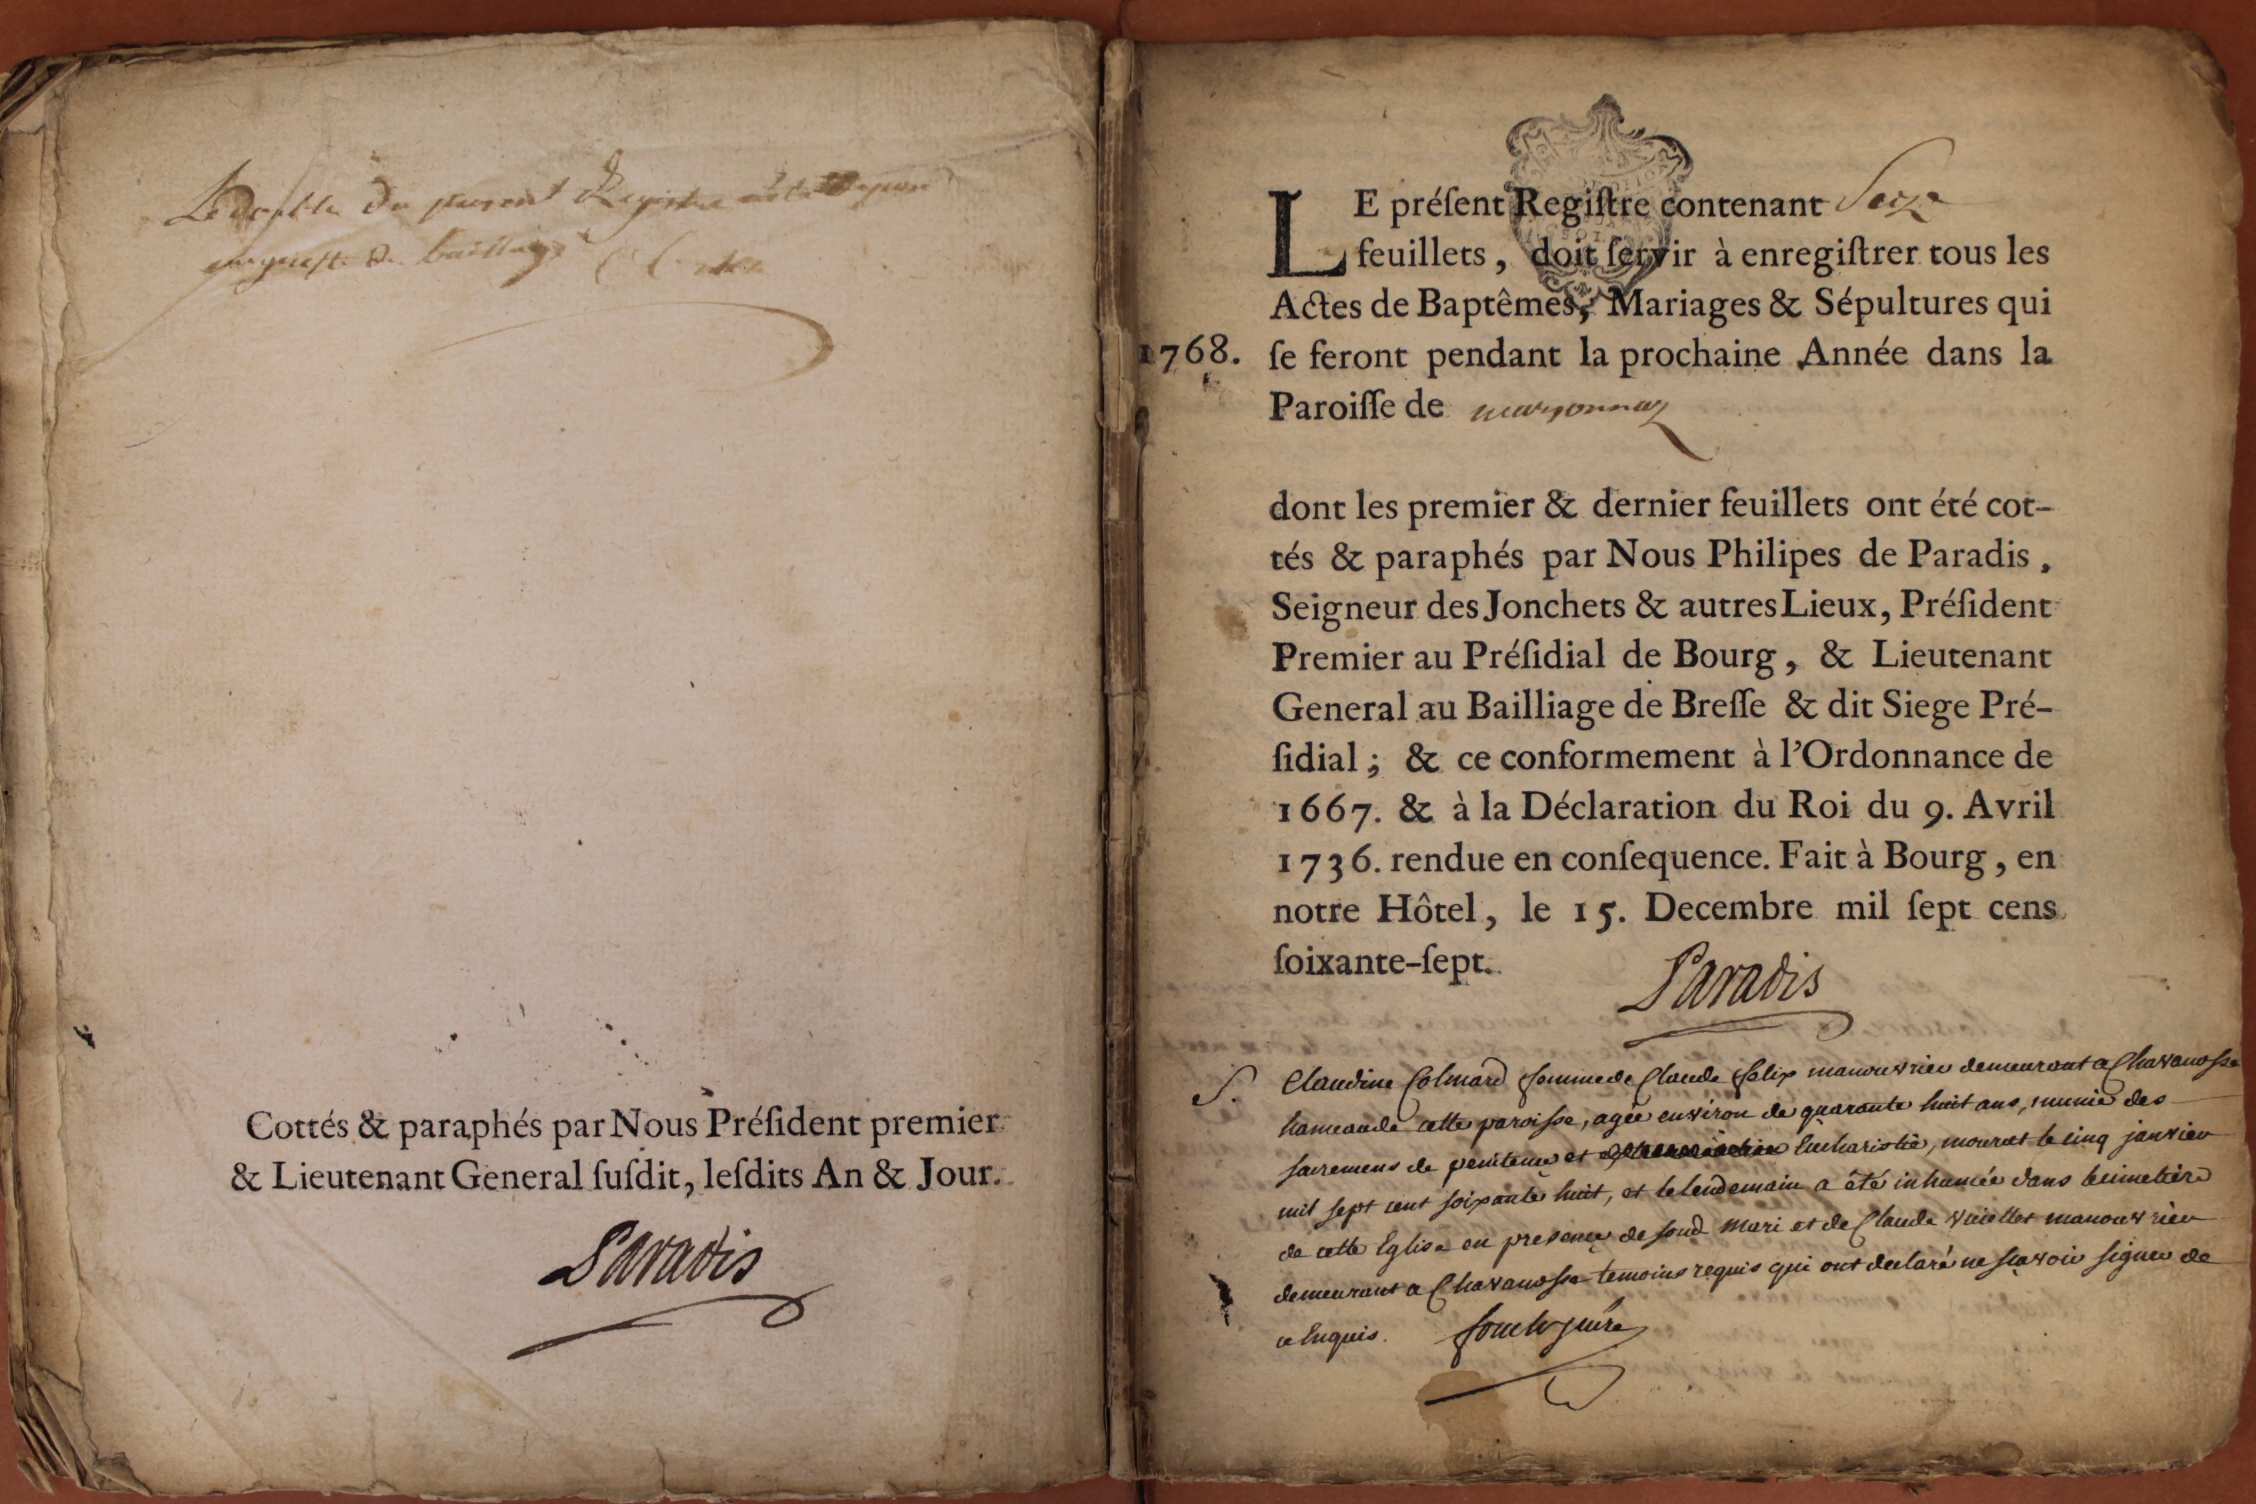 Le double du present Registre
au greffe du bailliage
Cottés & paraphés par Nous Préſident premier
& Lieutenant General ſuſdit, leſdits An & Jour.
Paradis
LE préſent Regiſtre contenant Seize
feuillets, doit ſervir à enregiſtrer tous les
Actes de Baptêmes, Mariages & Sépultures qui
1768. ſe feront pendant la prochaine Année dans la
Paroiſſe de marsonnaz
dont les premier & dernier feuillets ont été cot-
tés & paraphés par Nous Philipes de Paradis,
Seigneur des Jonchets & autres Lieux, Préſident
Premier au Préſidial de Bourg, & Lieutenant
General au Bailliage de Breſſe & dit Siege Pré-
ſidial; & ce conformement à l'Ordonnance de
1667. & à la Déclaration du Roi du 9. Avril
1736. rendue en conſequence. Fait à Bourg, en
notre Hôtel, le 15. Decembre mil ſept cens
ſoixante-ſept.
Paradis
S. Claudine Colmard femme de Claude felix manouvrier demeurant a Chavanosse
hameau de cette paroisse, agée environ de quarante huit ans, munie des
sacremens de penitence et Eucharistie, mourut le cinq janvier
mil sept cent soixante huit, et le lendemain a été inhumée dans le cimetiere
de cette Eglise en presence de soud mari et de Claude manouvrier
demeurant a Chavanosse temoins requis qui ont declaré ne sçavoir signer de
ce Enquis.